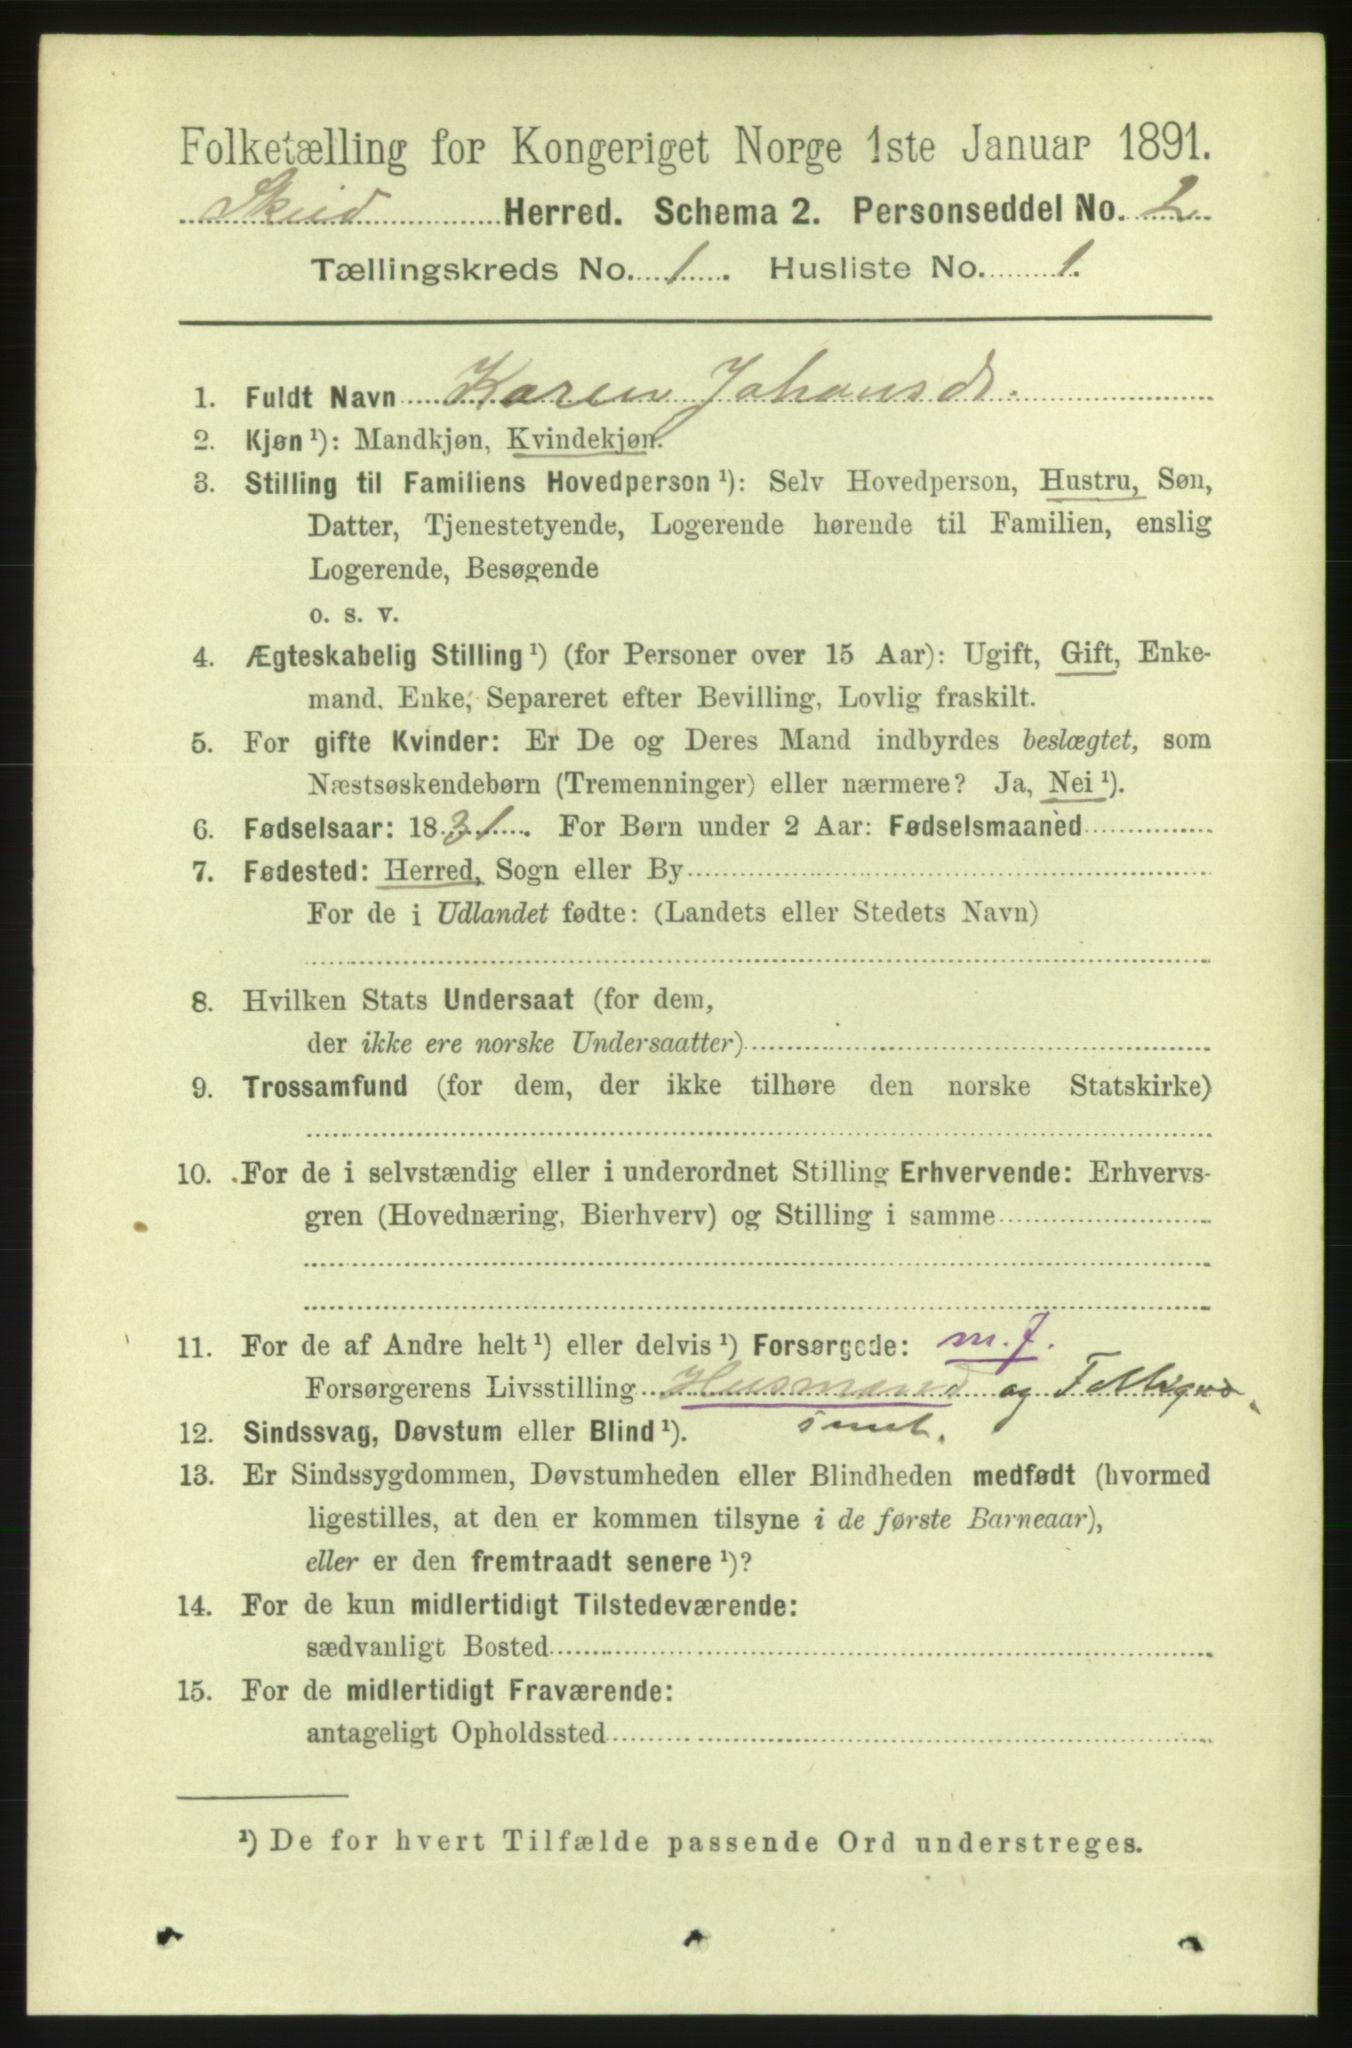 Folketælling for Kongeriget Norge 1ste Januar 1891.
Skeid Herred. Schema 2. Personseddel No. 2
Tællingskreds No. 1. Husliste No. 1.
1. Fuldt Navn Karen Johansdr.
2. Kjøn ¹): Mandkjøn, Kvindekjøn.
3. Stilling til Familiens Hovedperson ¹): Selv Hovedperson, Hustru, Søn,
Datter, Tjenestetyende, Logerende hørende til Familien, enslig
Logerende, Besøgende
o. s. v.
4. Ægteskabelig Stilling ¹) (for Personer over 15 Aar): Ugift, Gift, Enke-
mand, Enke, Separeret efter Bevilling, Lovlig fraskilt.
5. For gifte Kvinder: Er De og Deres Mand indbyrdes beslægtet, som
Næstsøskendebørn (Tremenninger) eller nærmere? Ja, Nei ¹).
6. Fødselsaar: 1831. For Børn under 2 Aar: Fødselsmaaned
7. Fødested: Herred, Sogn eller By
For de i Udlandet fødte: (Landets eller Stedets Navn)
8. Hvilken Stats Undersaat (for dem,
der ikke ere norske Undersaatter)
9. Trossamfund (for dem, der ikke tilhøre den norske Statskirke)
10. For de i selvstændig eller i underordnet Stilling Erhvervende: Erhvervs-
gren (Hovednæring, Bierhverv) og Stilling i samme
11. For de af Andre helt ¹) eller delvis ¹) Forsørgede: m. J.
Forsørgerens Livsstilling Husmand og
12. Sindssvag, Døvstum eller Blind ¹).
13. Er Sindssygdommen, Døvstumheden eller Blindheden medfødt (hvormed
ligestilles, at den er kommen tilsyne i de første Barneaar),
eller er den fremtraadt senere ¹)?
14. For de kun midlertidigt Tilstedeværende:
sædvanligt Bosted
15. For de midlertidigt Fraværende:
antageligt Opholdssted
¹) De for hvert Tilfælde passende Ord understreges.